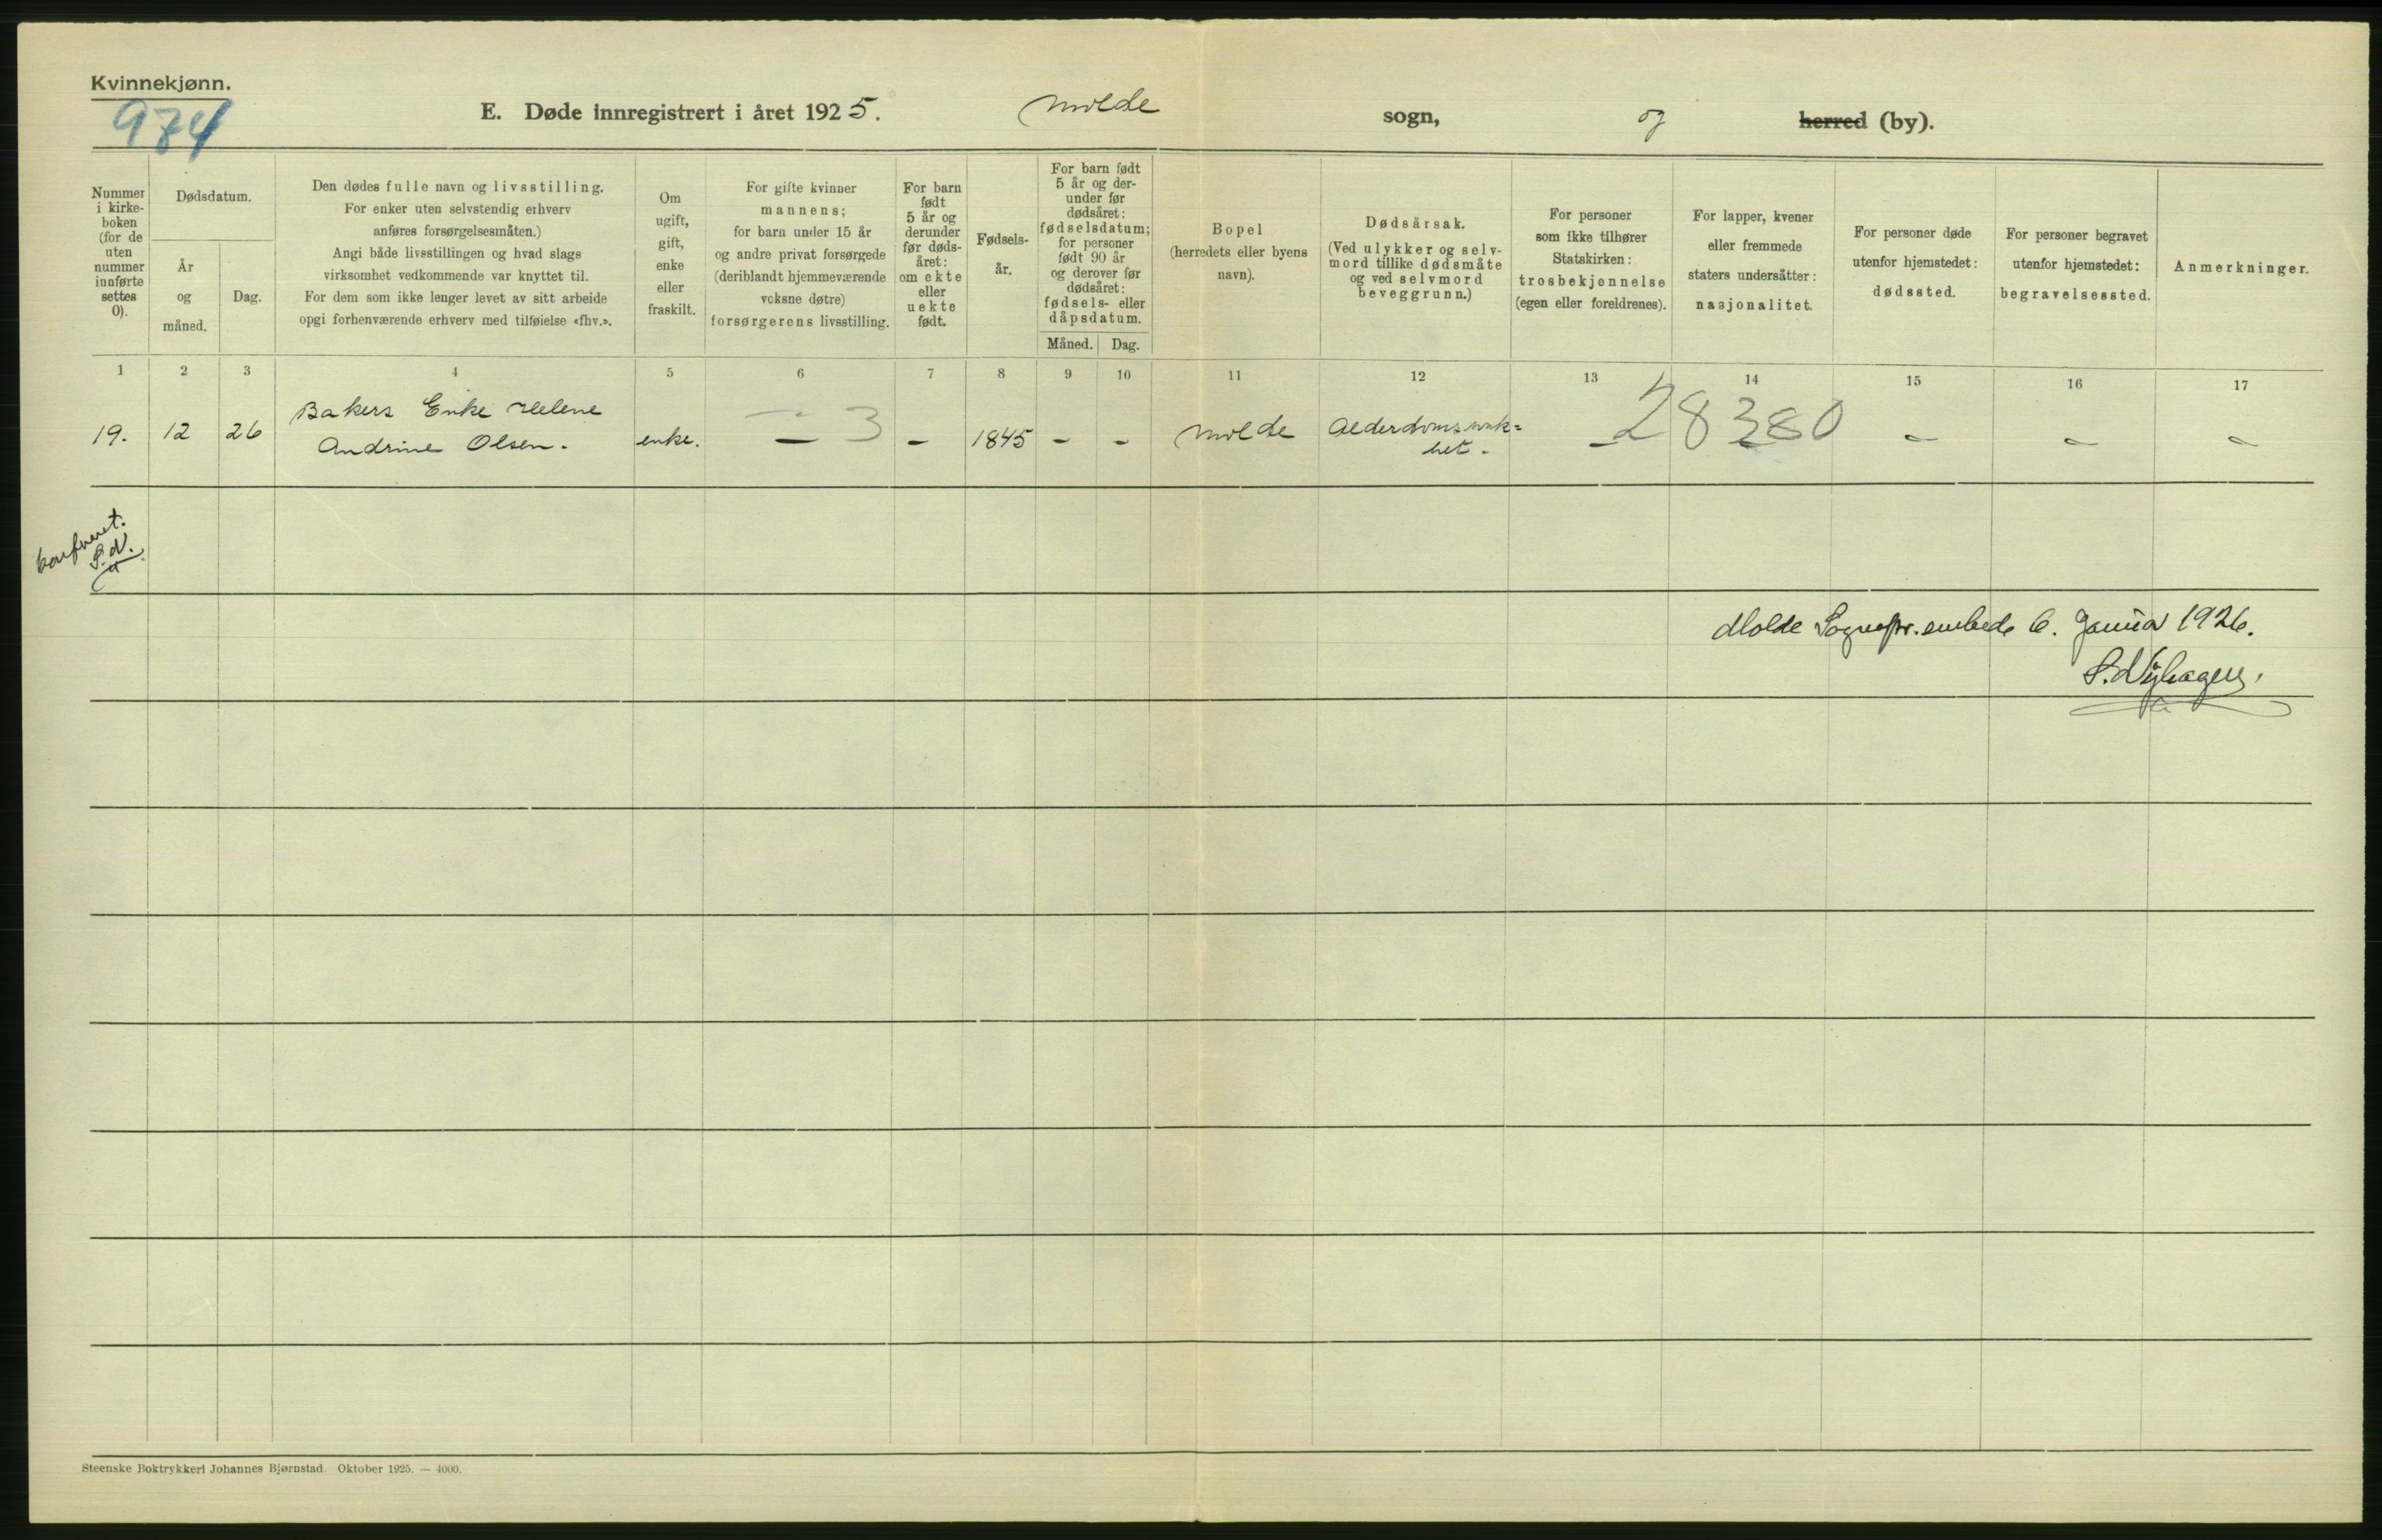 Kvinnekjønn.
974
E. Døde innregistrert i året 1925. Molde sogn, og herred (by).
Nummer
i kirke-
boken
(for de
uten
nummer
innførte
settes
0).
Dødsdatum.
År
og
måned.
Dag.
Den dødes fulle navn og livsstilling.
For enker uten selvstendig erhverv
anføres forsørgelsesmåten.)
Angi både livsstillingen og hvad slags
virksomhet vedkommende var knyttet til.
For dem som ikke lenger levet av sitt arbeide
opgi forhenværende erhverv med tilføielse «fhv.».
Om
ugift,
gift,
enke
eller
fraskilt.
For gifte kvinner
mannens;
for barn under 15 år
og andre privat forsørgede
(deriblandt hjemmeværende
voksne døtre)
forsørgerens livsstilling.
For barn
født
5 år og
derunder
før døds-
året:
om ekte
eller
uekte
født.
Fødsels-
år.
For barn født
5 år og der-
under før
dødsåret:
fødselsdatum;
for personer
født 90 år
og derover før
dødsåret:
fødsels- eller
dåpsdatum.
Måned. Dag.
Bopel
(herredets eller byens
navn).
Dødsårsak.
(Ved ulykker og selv-
mord tillike dødsmåte
og ved selvmord
beveggrunn.)
For personer
som ikke tilhører
Statskirken:
trosbekjennelse
(egen eller foreldrenes).
For lapper, kvener
eller fremmede
staters undersåtter:
nasjonalitet.
For personer døde
utenfor hjemstedet:
dødssted.
For personer begravet
utenfor hjemstedet:
begravelsessted.
Anmerkninger.
1 2 3 4 5 6 7 8 9 10 11 12 13 14 15 16 17
19. 12 26 Bakers Enke Helene
Andrine Olsen. enke. — 3 – 1845 – – Molde Alderdomssvak=
het. – 28380 – – –
konferert.
S.N.
Molde Sognepr.embede 6. Januar 1926.
S. Nyhagen.
Steenske Boktrykkeri Johannes Bjørnstad. Oktober 1925. — 4000.